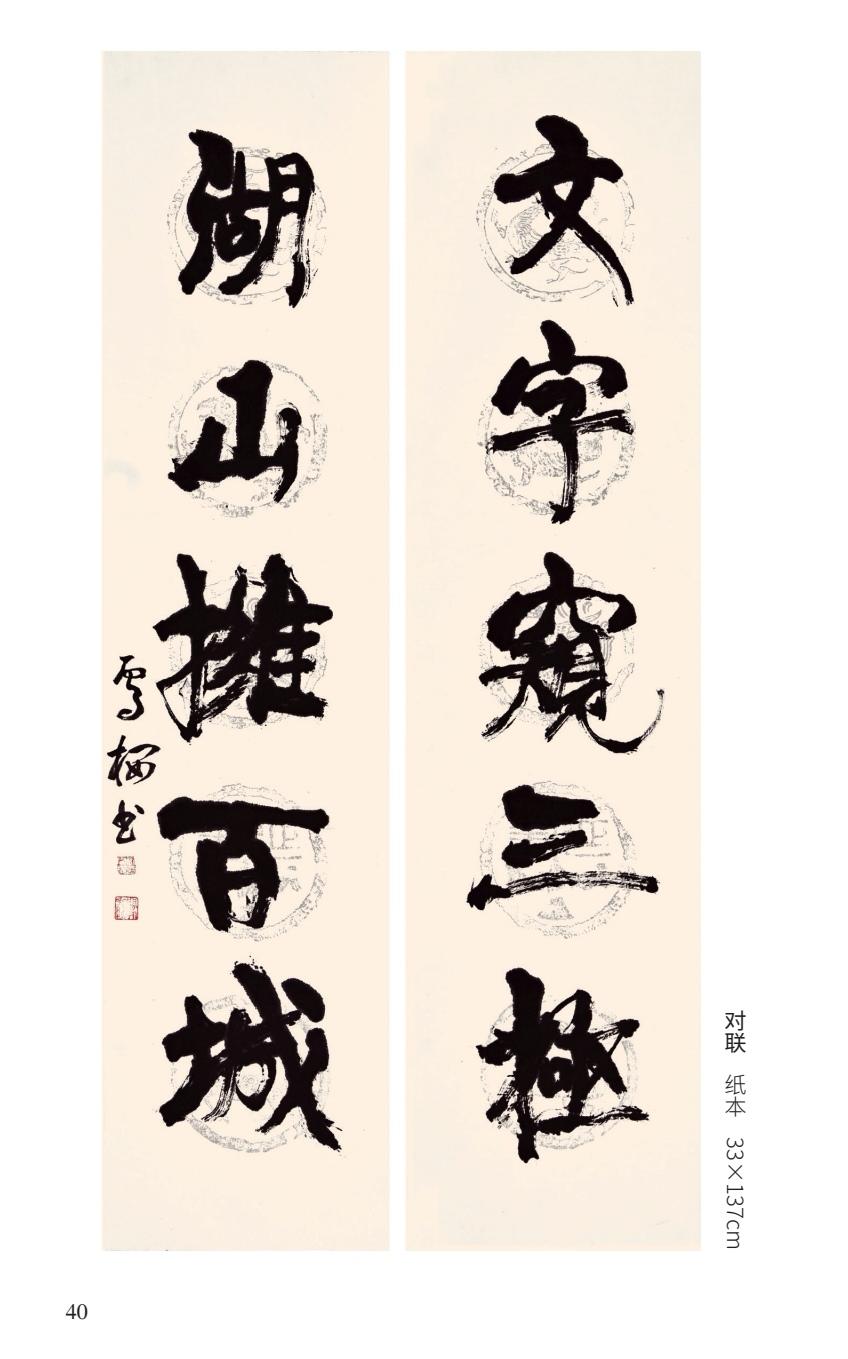 文字窺三極
湖山擁百城
雪梅书
对联 纸本 33×137cm
40